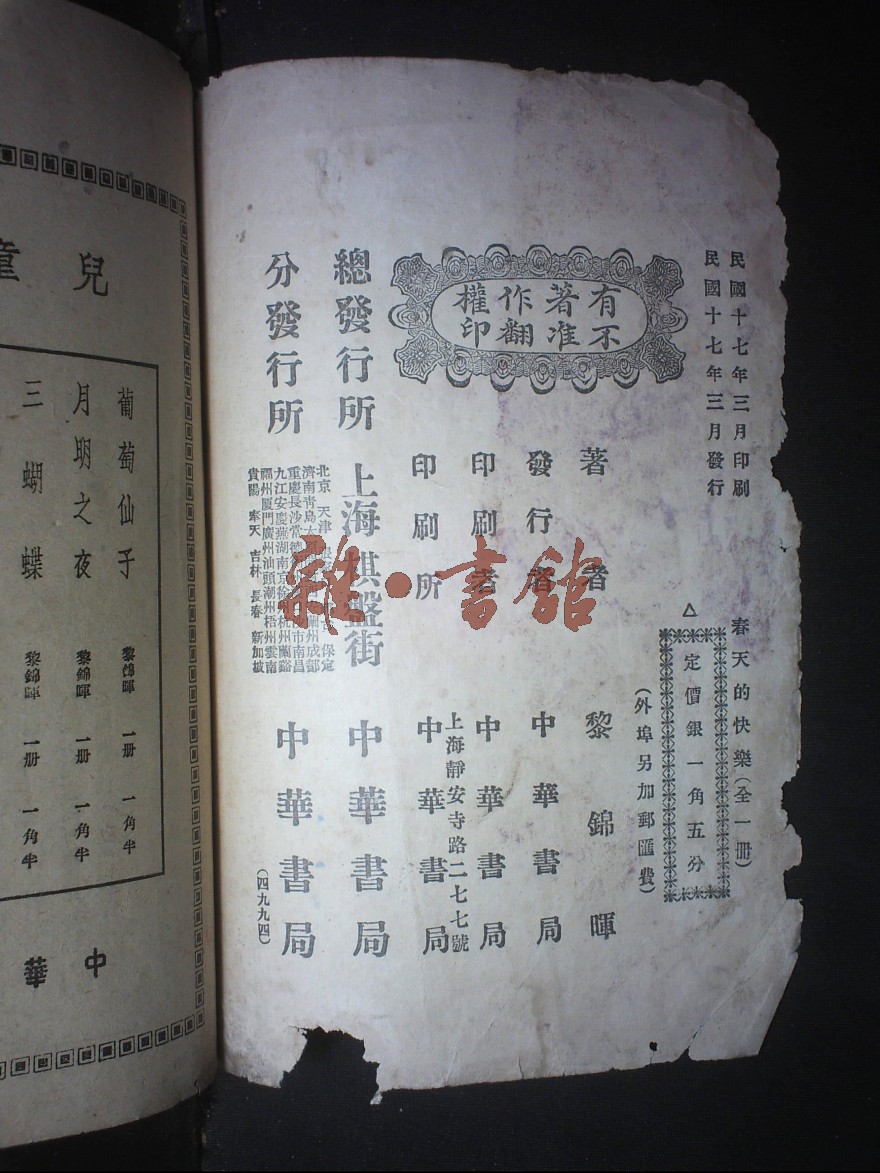 民國十七年三月印刷
民國十七年三月發行
春天的快樂(全一册)
△
定價銀一角五分
(外埠另加郵匯費)
有著作權
不准翻印
著者 黎錦暉
發行者 中華書局
印刷者 中華書局
上海靜安寺路二七七號
印刷所 中華書局
總發行所 上海棋盤街 中華書局
分發行所
北京 天津 保定
濟南青島 蘭州成都
重慶長沙常德 市南昌
九江安慶蕪湖南京徐州杭州蘭谿
福州厦門廣州汕頭潮州梧州雲南
貴陽 奉天 吉林 長春 新加坡
中華書局
(四九九四)
雜·書館
兒童
葡萄仙子 黎錦暉 一册 一角半
月明之夜 黎錦暉 一册 一角半
三蝴蝶 黎錦暉 一册 一角半
中華